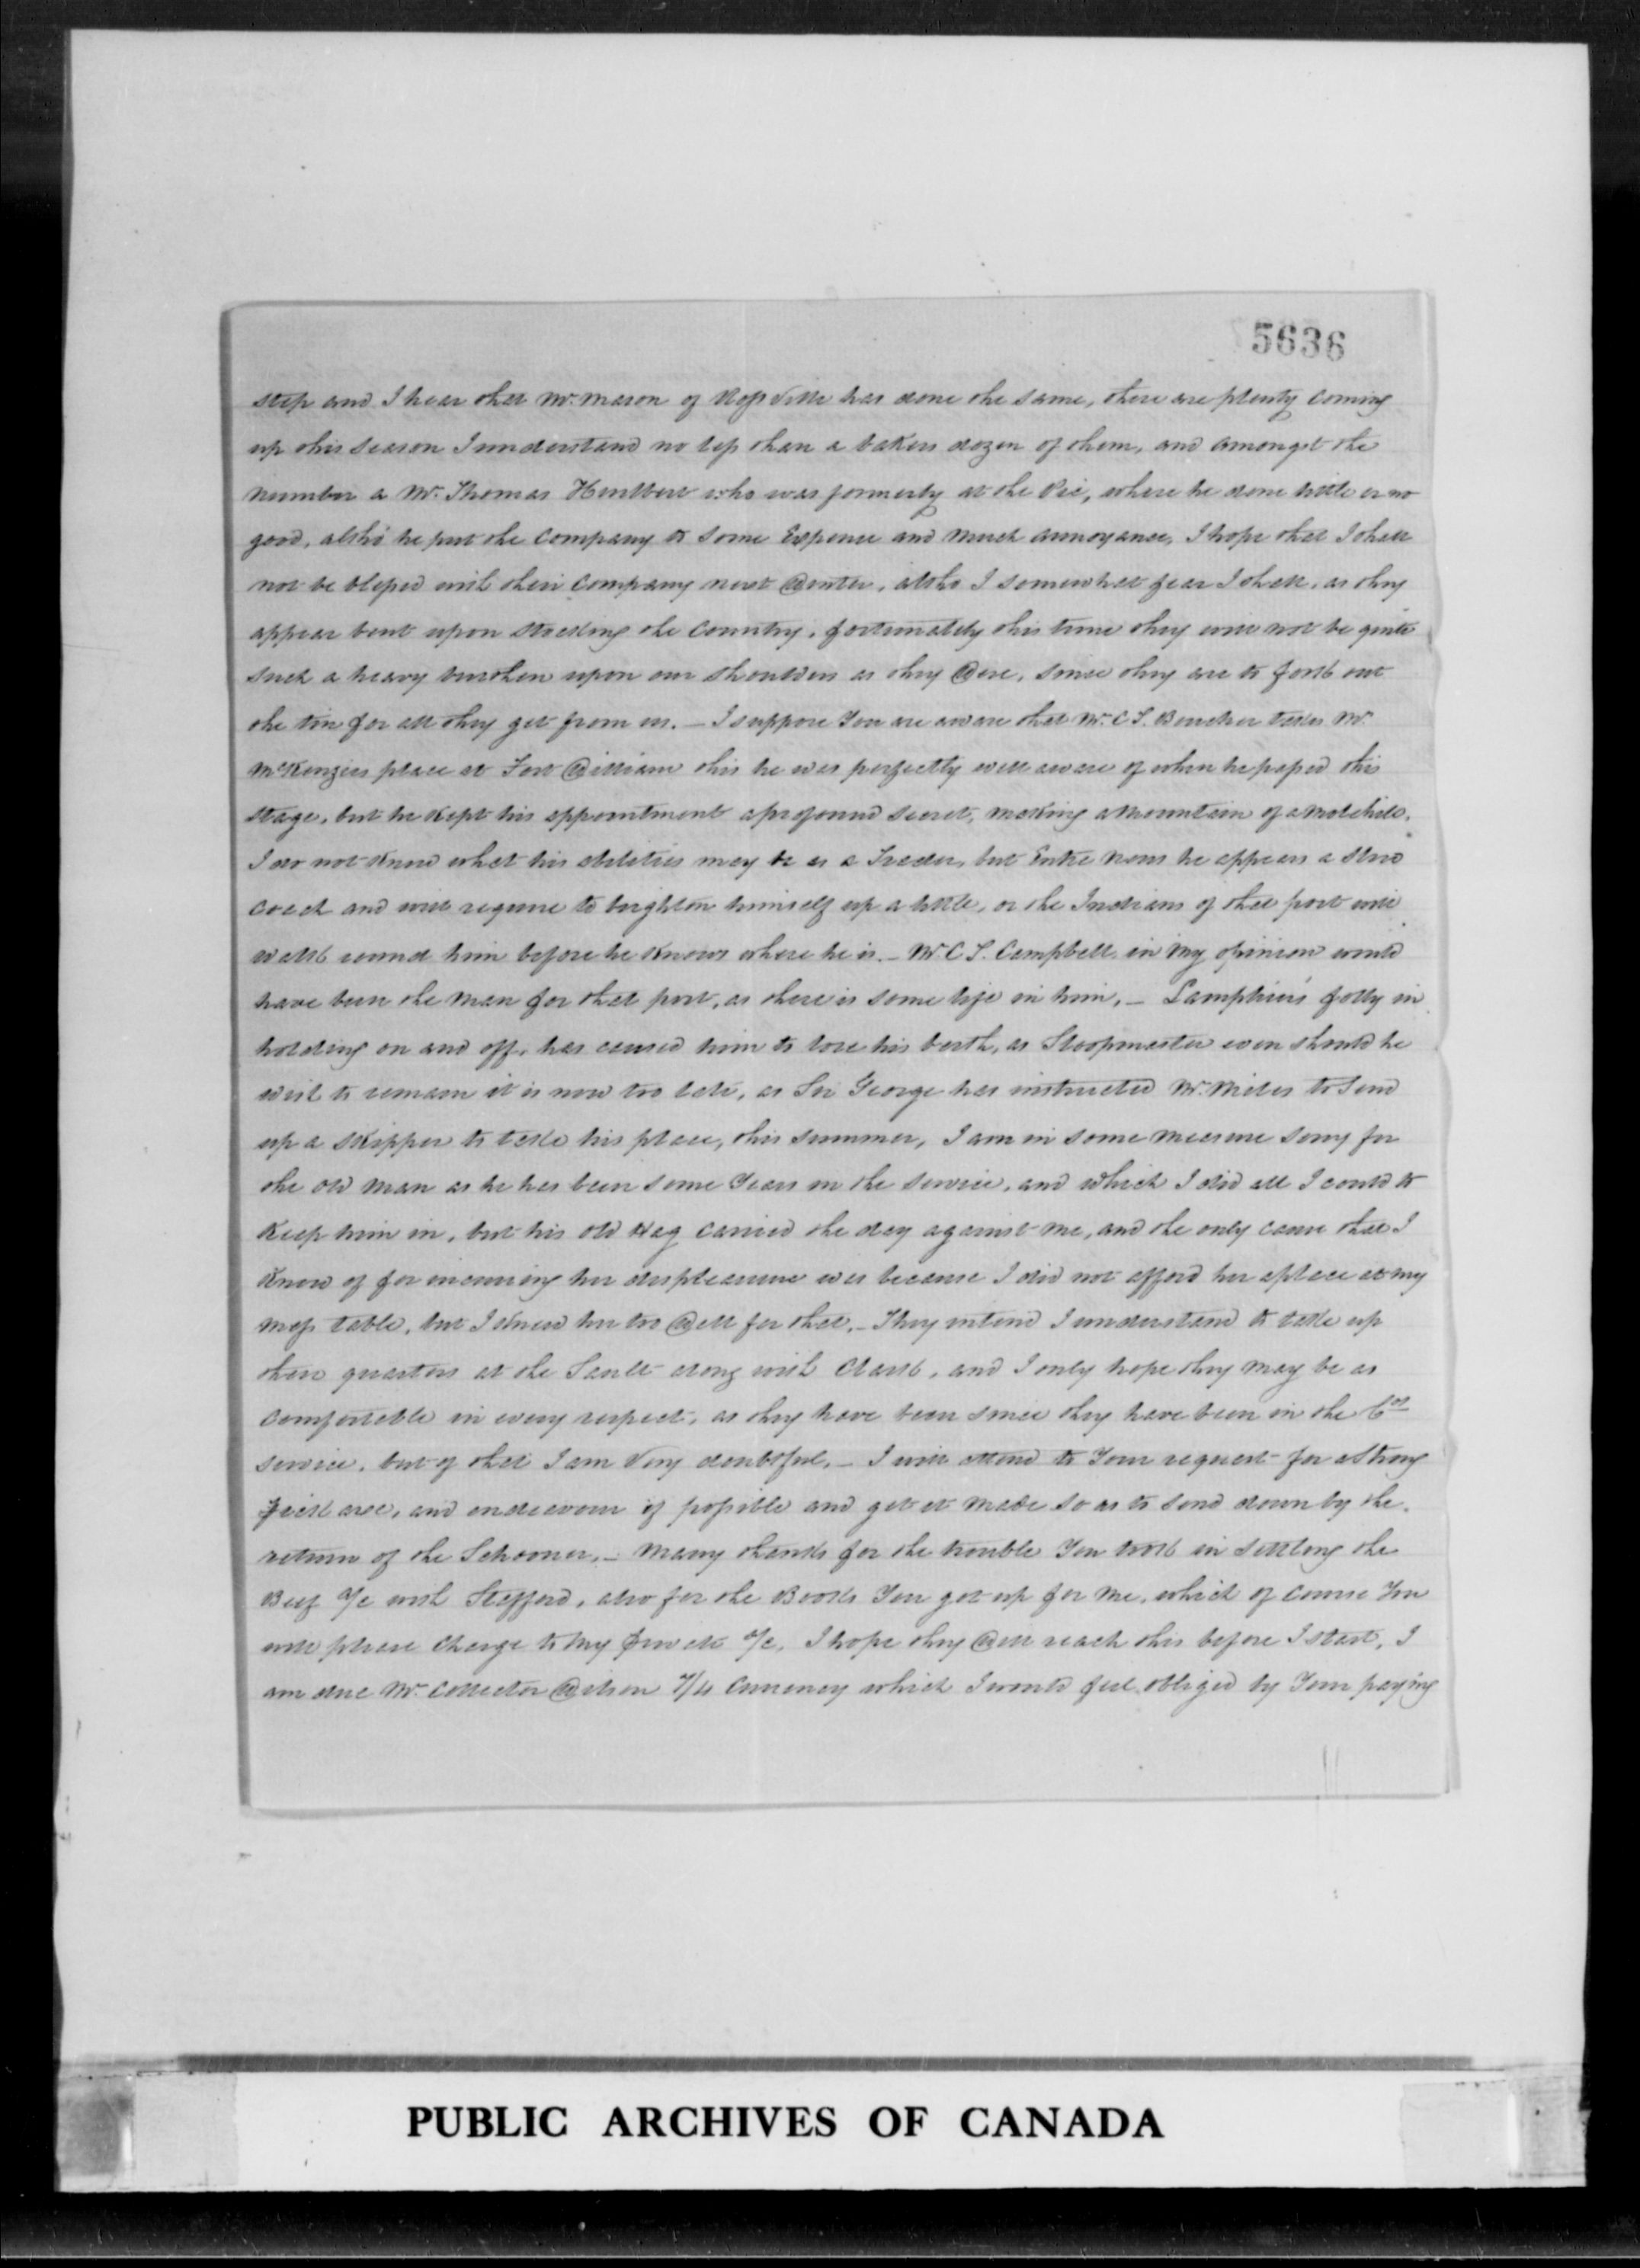 5636
step and I hear that Mr. Mason of Rossville has done the same, there are plenty coming
up this season I understand no less than a bakers dozen of them, and amongst the
number a Mr. Thomas Hurlburt who was formerly at the Pic, where he done little or no
good, altho' he put the Company to some Expence and much annoyance, I hope that I shall
not be blessed with their Company next Winter, altho I somewhat fear I shall, as they
appear bent upon stocking the Country, fortunately this time they will not be quite
such a heavy burthen upon our shoulders as they Were, since they are to fork out
the tin for all they get from us. — I suppose You are aware that Mr. C T. Boucher takes Mr.
McKenzies place at Fort William this he was perfectly well aware of when he passed this
stage, but he kept his appointment a profound secret, making a Mountain of a Molehill.
I do not know what his abilities may be as a Trader, but Entre Nous he appears a slow
coach and will require to brighten himself up a little, or the Indians of that post will
walk round him before he knows where he is. — Mr. C T. Campbell in My opinion would
have been the Man for that post, as there is some life in him, — Lamphier's folly in
holding on and off, has caused him to lose his berth, as Sloopmaster even should he
wish to remain it is now too late, as Sir George has instructed Mr. Miles to Send
up a Skipper to take his place, this summer, I am in some measure sorry for
the old Man as he has been some Years in the service, and which I did all I could to
Keep him in, but his old Hag carried the day against Me, and the only cause that I
Know of for incurring her displeasure was because I did not afford her a place at my
mess table, but I knew her too Well for that, — They intend I understand to take up
their quarters at the Sault along with Clark, and I only hope they may be as
comfortable in every respect, as they have been since they have been in the Cos
service, but of that I am Very doubtful, — I will attend to Your request for a Strong
Pick axe, and endeavour if possible and get it Made so as to send down by the
return of the Schooner, — Many thanks for the trouble You took in settling the
Beef a/c with Stafford, also for the Books You got up for Me, which of course You
will please charge to My Private a/c, I hope they Will reach this before I start, I
am due Mr. Collector Wilson Currency which I would feel obliged by Your paying
PUBLIC ARCHIVES OF CANADA